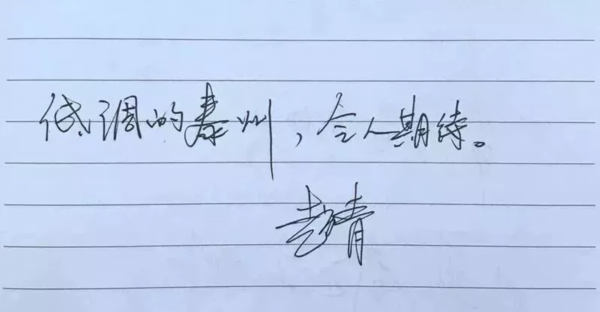 低调的泰州，令人期待。